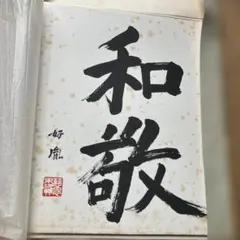 和敬
好胤